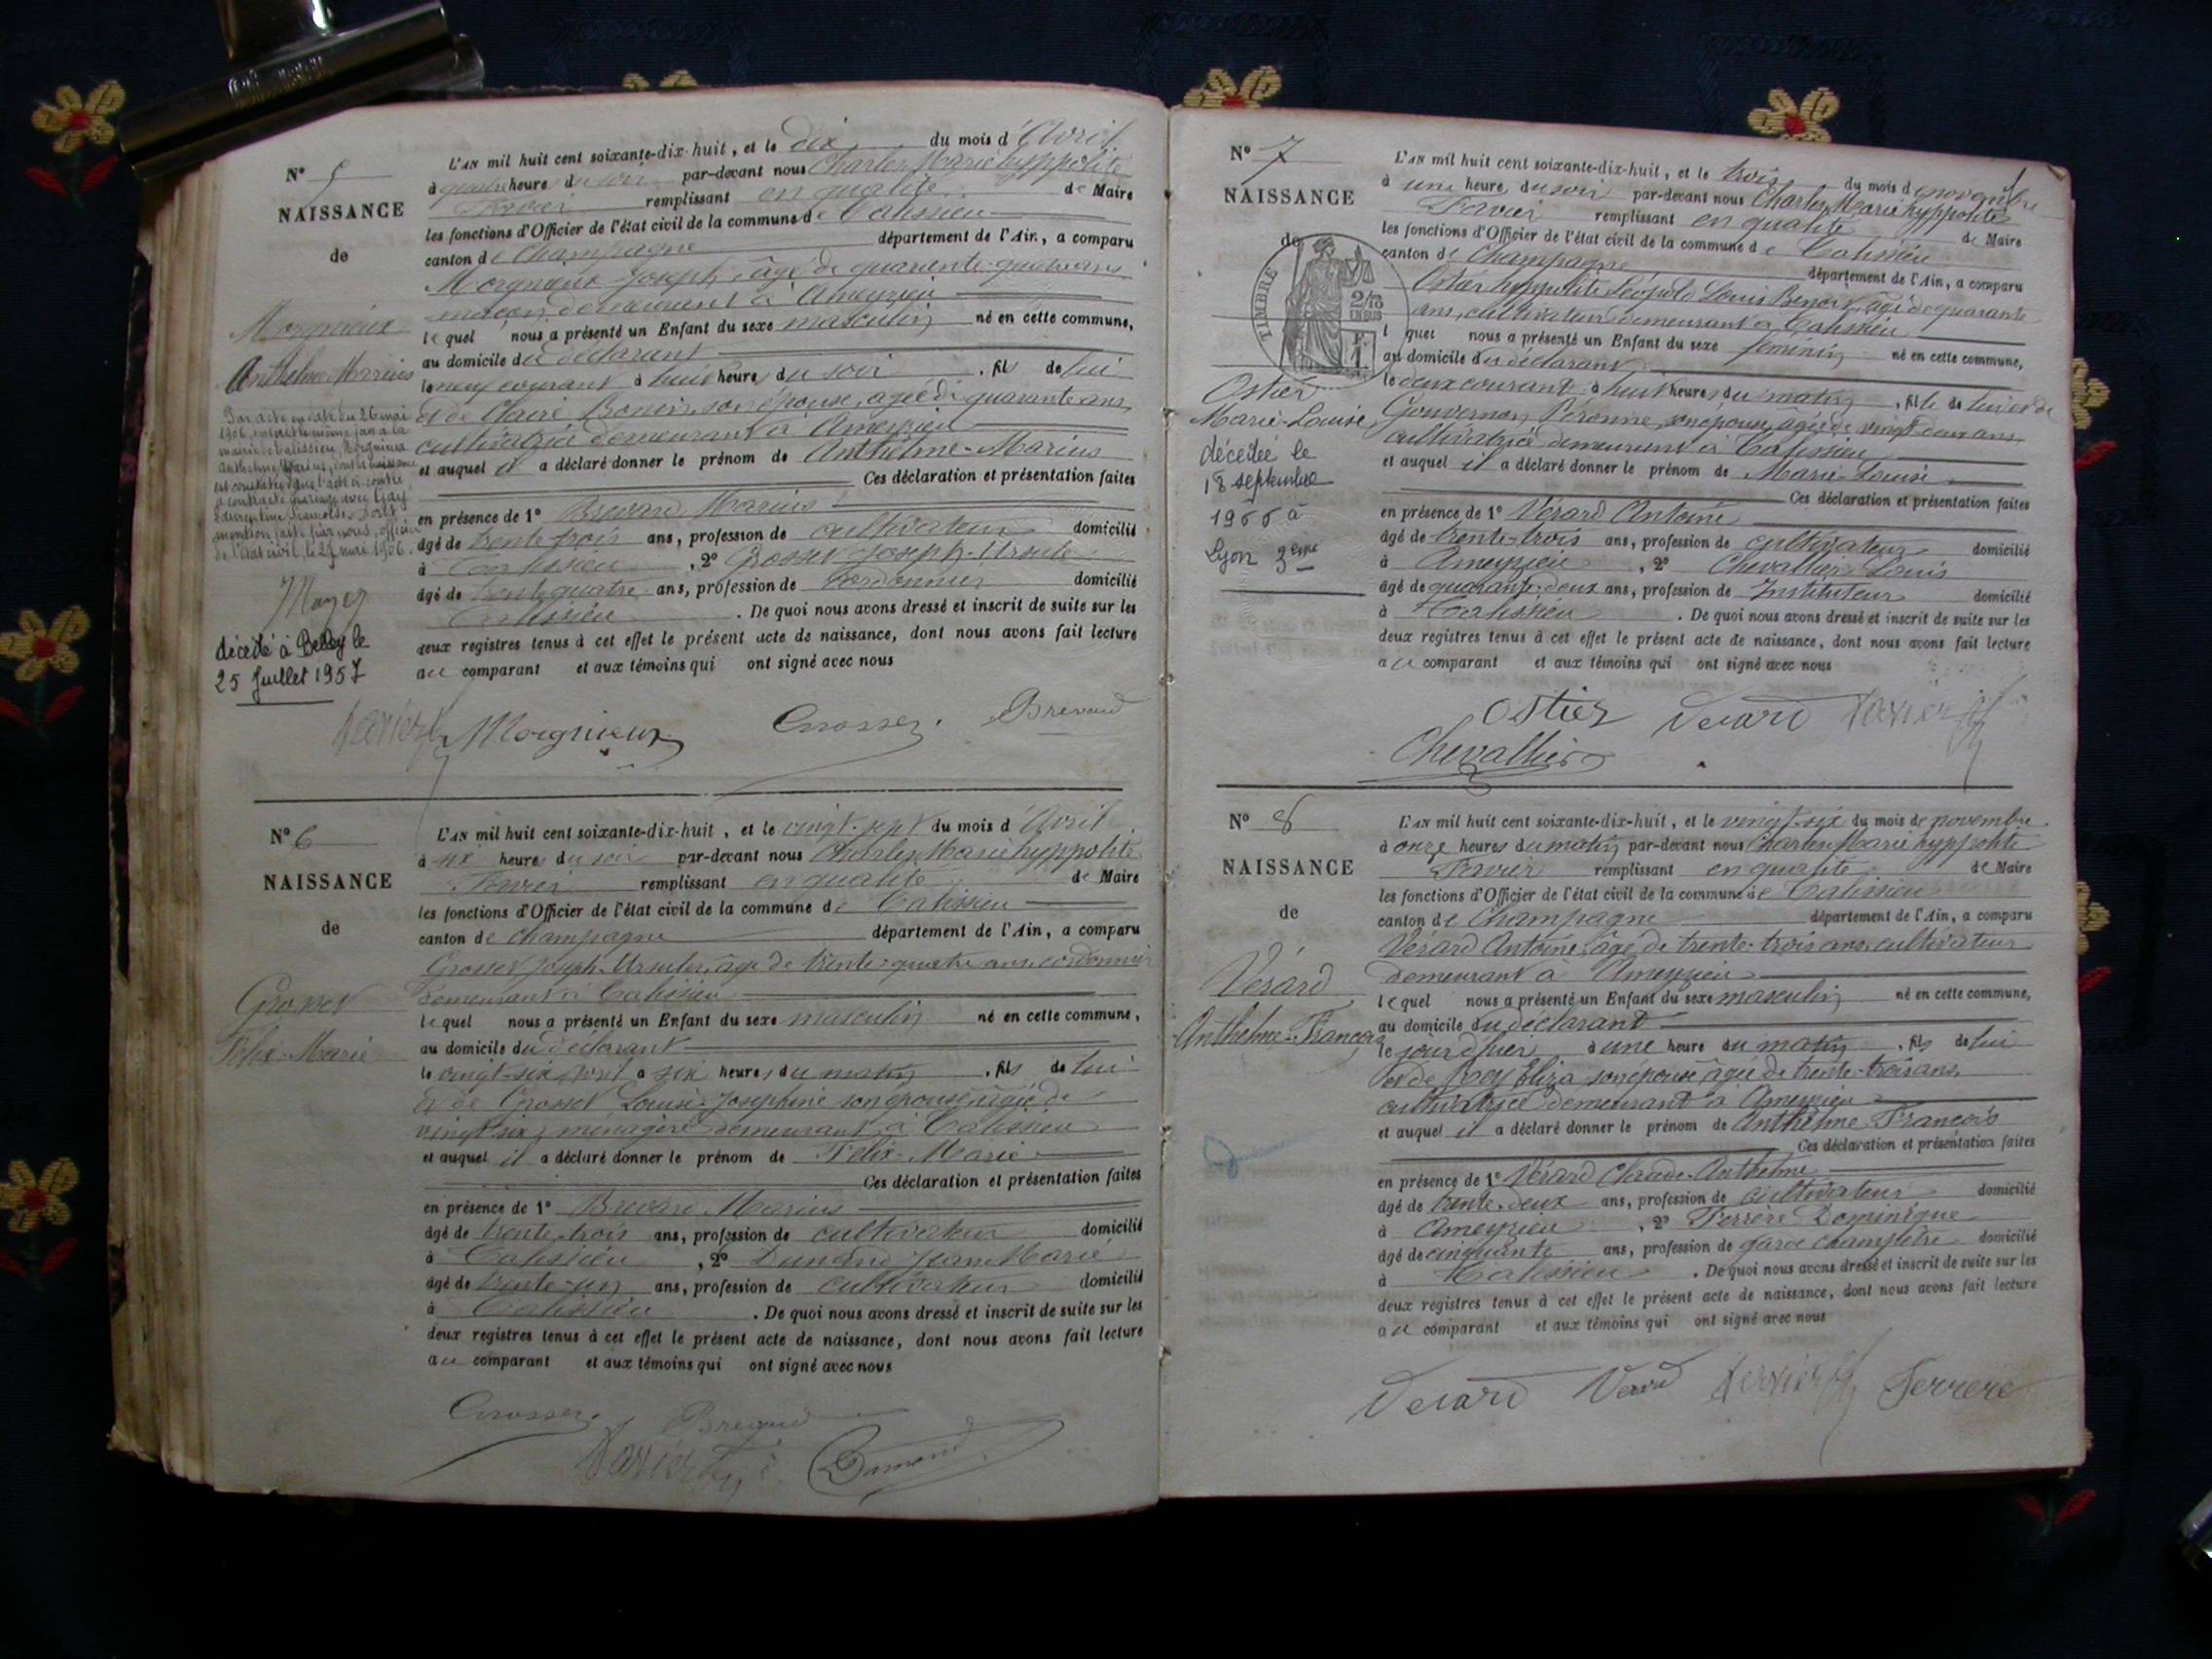 N° 5
NAISSANCE
de
Morgnieux
Anthelme Marius
Par acte en date du 26 mai
1906, le même jour à la
mairie de Talissieu, Morgnieux
Anthelme Marius, dont la naissance
est constatée dans l'acte ci-contre,
a contracté mariage avec
mention faite par nous, officier
de l'état civil, le 29 mai 1906.
décédé à Belley le
25 Juillet 1957
L'AN mil huit cent soixante-dix-huit, et le dix du mois d'Avril
à quatre heure du soir par-devant nous Charles Marie hyppolite
remplissant en qualité de Maire
les fonctions d'Officier de l'état civil de la commune de Talissieu
canton de Champagne département de l'Ain, a comparu
Morgnieux Joseph, âgé de quarante-quatre ans
maçon demeurant à Ameyzieu
lequel nous a présenté un Enfant du sexe masculin né en cette commune,
au domicile du déclarant
le neuf courant à huit heure du soir, fils de lui
et de Claire Bonnin son épouse, agée de quarante ans,
cultivatrice demeurant à Ameyzieu
et auquel il a déclaré donner le prénom de Anthelme-Marius
Ces déclaration et présentation faites
en présence de 1° Brevard Marius
âgé de trente trois ans, profession de cultivateur domicilié
à Talissieu, 2° Grosset Joseph-Ursule
âgé de trente quatre ans, profession de Cordonnier domicilié
Talissieu. De quoi nous avons dressé et inscrit de suite sur les
deux registres tenus à cet effet le présent acte de naissance, dont nous avons fait lecture
au comparant et aux témoins qui ont signé avec nous
Morgnieux Grosset Brevard
N° 6
NAISSANCE
de
Grosset
Félix-Marie
L'AN mil huit cent soixante-dix-huit, et le vingt-sept du mois d'Avril
à six heures du soir par-devant nous Charles Marie hyppolite
remplissant en qualité de Maire
les fonctions d'Officier de l'état civil de la commune de Talissieu
canton de Champagne département de l'Ain, a comparu
Grosset Joseph-Ursule, âgé de trente-quatre ans, cordonnier
demeurant à Talissieu
lequel nous a présenté un Enfant du sexe masculin né en cette commune,
au domicile du déclarant
le vingt-six Avril à six heures du matin, fils de lui
et de Grosset Louise-Josephine son épouse agée de
vingt-six, ménagère demeurant à Talissieu
et auquel il a déclaré donner le prénom de Félix-Marie
Ces déclaration et présentation faites
en présence de 1° Brevard Marius
âgé de trente-trois ans, profession de cultivateur domicilié
à Talissieu, 2° Dumond Jean Marie
âgé de trente-un ans, profession de cultivateur domicilié
à Talissieu. De quoi nous avons dressé et inscrit de suite sur les
deux registres tenus à cet effet le présent acte de naissance, dont nous avons fait lecture
au comparant et aux témoins qui ont signé avec nous
Grosset Brevard
Dumond
N° 7
NAISSANCE
de
TIMBRE
Ostier
Marie-Louise
décédée le
18 septembre
1966 à
Lyon 3ème
L'AN mil huit cent soixante-dix-huit, et le trois du mois de novembre
à une heure du soir par-devant nous Charles Marie hyppolite
remplissant en qualité de Maire
les fonctions d'Officier de l'état civil de la commune de Talissieu
canton de Champagne département de l'Ain, a comparu
Ostier hyppolite Léopold Louis Benoit, âgé de quarante
ans, cultivateur demeurant à Talissieu
lquel nous a présenté un Enfant du sexe féminin né en cette commune,
au domicile du déclarant
le deux courant à huit heures du matin, fille de lui et de
Gouvernon Péronne, son épouse, âgée de vingt-deux ans
cultivatrice demeurant à Talissieu
et auquel il a déclaré donner le prénom de Marie-Louise
Ces déclaration et présentation faites
en présence de 1° Vérard Antoine
âgé de trente-trois ans, profession de cultivateur domicilié
à Ameyzieu, 2° Chevallier Louis
âgé de quarante-deux ans, profession de Instituteur domicilié
à Talissieu. De quoi nous avons dressé et inscrit de suite sur les
deux registres tenus à cet effet le présent acte de naissance, dont nous avons fait lecture
au comparant et aux témoins qui ont signé avec nous
Ostier Verard
Chevallier
N° 8
NAISSANCE
de
Vérard
Anthelme-François
L'AN mil huit cent soixante-dix-huit, et le vingt-six du mois de novembre
à onze heures du matin par-devant nous Charles Marie hyppolite
remplissant en qualité de Maire
les fonctions d'Officier de l'état civil de la commune de Talissieu
canton de Champagne département de l'Ain, a comparu
Vérard Antoine, âgé de trente-trois ans, cultivateur
demeurant à Ameyzieu
lequel nous a présenté un Enfant du sexe masculin né en cette commune,
au domicile du déclarant
le jour d'hier à une heure du matin, fils de lui
et de Rey Eliza son épouse âgée de trente-trois ans,
cultivatrice demeurant à Ameyzieu
et auquel il a déclaré donner le prénom de Anthelme François
Ces déclaration et présentation faites
en présence de 1° Vérard Claude-Anthelme
âgé de trente-deux ans, profession de cultivateur domicilié
à Ameyzieu, 2° Ferrère Dominique
âgé de cinquante ans, profession de garde champêtre domicilié
à Talissieu. De quoi nous avons dressé et inscrit de suite sur les
deux registres tenus à cet effet le présent acte de naissance, dont nous avons fait lecture
au comparant et aux témoins qui ont signé avec nous
Verard Verard Ferrere